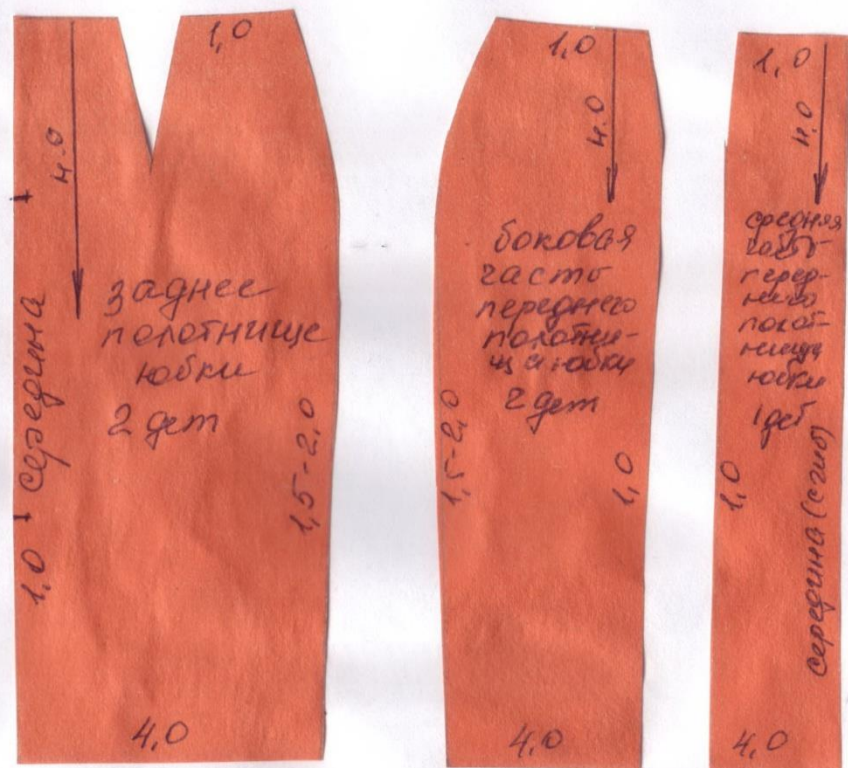 1,0
н.о
заднее
полотнище
юбки
2 дет
1,0 середина
1,5-2,0
4,0
1,0
н.о
боковая
часть
переднего
полотни-
ща юбки
2 дет
1,5-2,0
1,0
4,0
1,0
н.о
средняя
часть
перед-
него
полот-
нища
юбки
1дет
1,0
середина (сгиб)
4,0